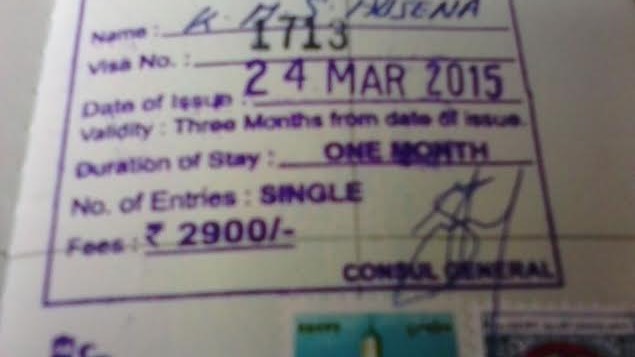 Name : K. M. S.
Visa No. : 1713
Date of Issue : 24 MAR 2015
Validity : Three Months from date of issue.
Duration of Stay : ONE MONTH
No. of Entries : SINGLE
Fees : ₹ 2900/-
CONSUL GENERAL